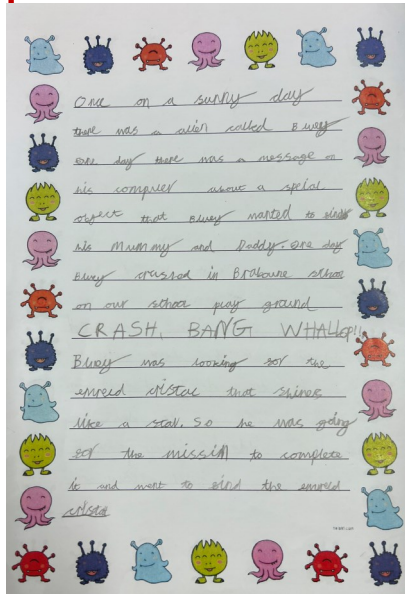 Once on a sunny day
there was a alien called Bwey
one day there was a message on
his computer about a spelal
object that Bwey wanted to sind
his Mummy and Daddy. One day
Bwey crassed in Brabourne schoo
on our schoo play ground
CRASH, BANG WHALLOP!!
Bwey was looking sor the
emreld cristac that shines
like a star. So he was going
sor the missin to complete
it and went to sind the emreld
cristac